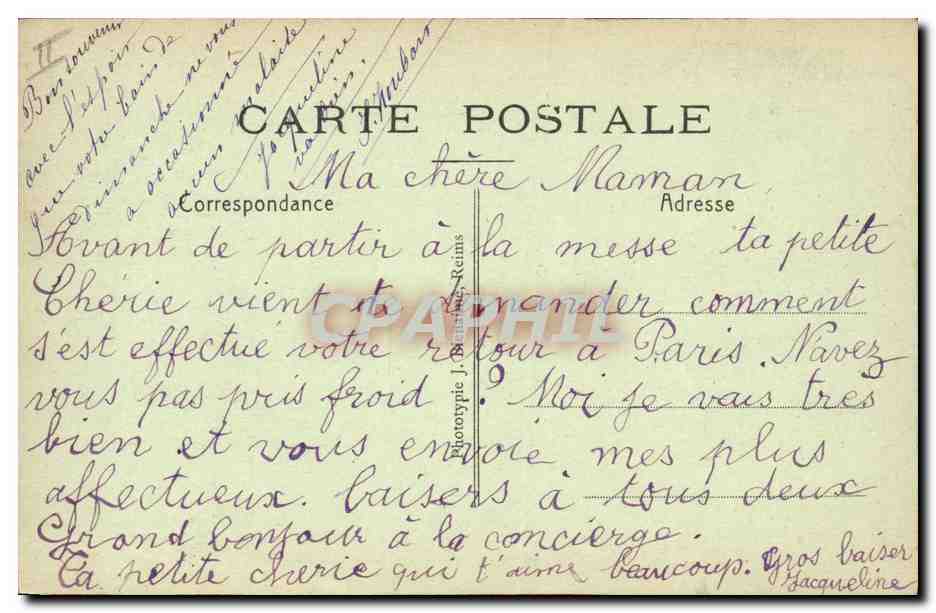 II
Bon souvenir
avec l'espoir
que votre bain de
dimanche ne vous
a occasionné
aucun malaise
Jacqueline
va bien.
CARTE POSTALE
Ma chère Maman,
Correspondance
Adresse
Avant de partir à la messe ta petite
Chérie vient te demander comment
s'est effectué votre retour à Paris. N'avez
vous pas pris froid ? Moi je vais très
bien et vous envoie mes plus
affectueux baisers à tous deux
Grand bonjour à la concierge.
Ta petite cherie qui t'aime beaucoup. Gros baiser
Jacqueline
Phototypie J. Bienaimé, Reims
CPAPHIL